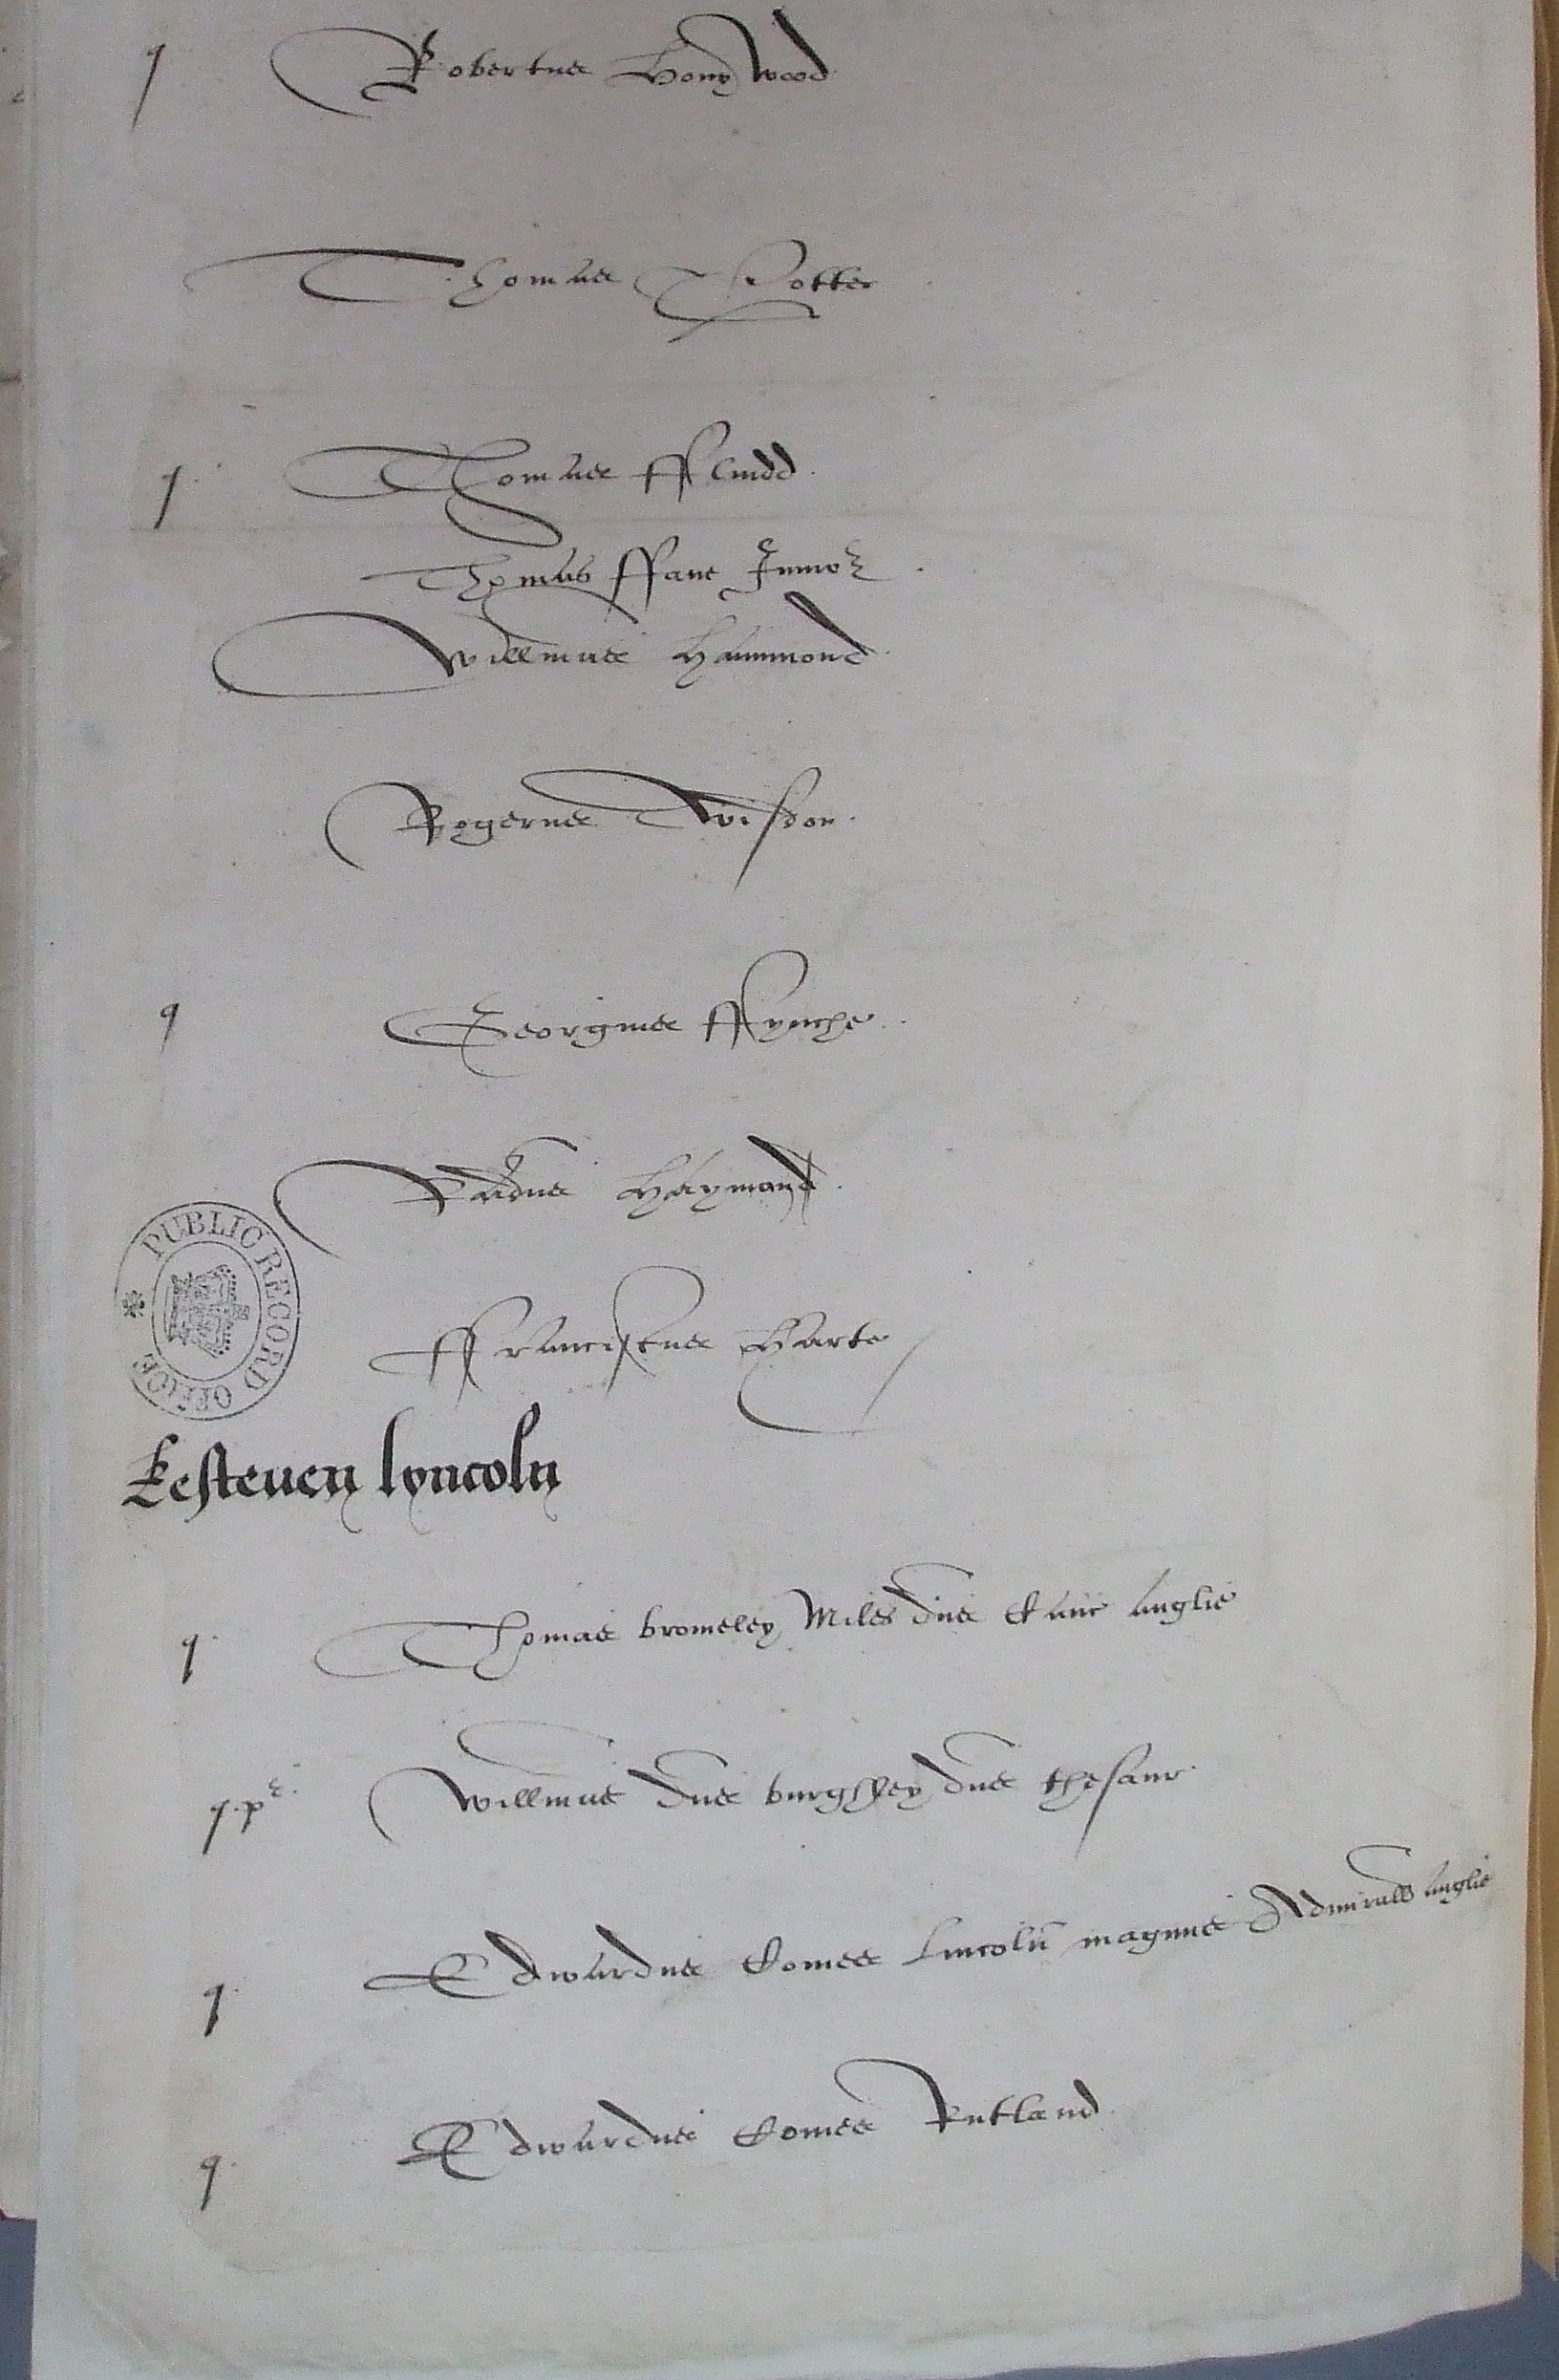 q Robertus Honywood
Thomas Potter
q Thomas ffludd
Thomas ffane Junior
Willmus Hammond
Rogerus Twisdon
q Georgius ffynche
Radus Haymand
ffranciscus Harte
PUBLIC RECORD OFFICE
Kesteven lyncoln
q Thomas bromeley Miles dns Canc Anglie
q. pr Willmus dns burghley dns thesaur
q Edwardus Comes Lincoln magnus Admirall Anglie
q Edwardus Comes Rutland